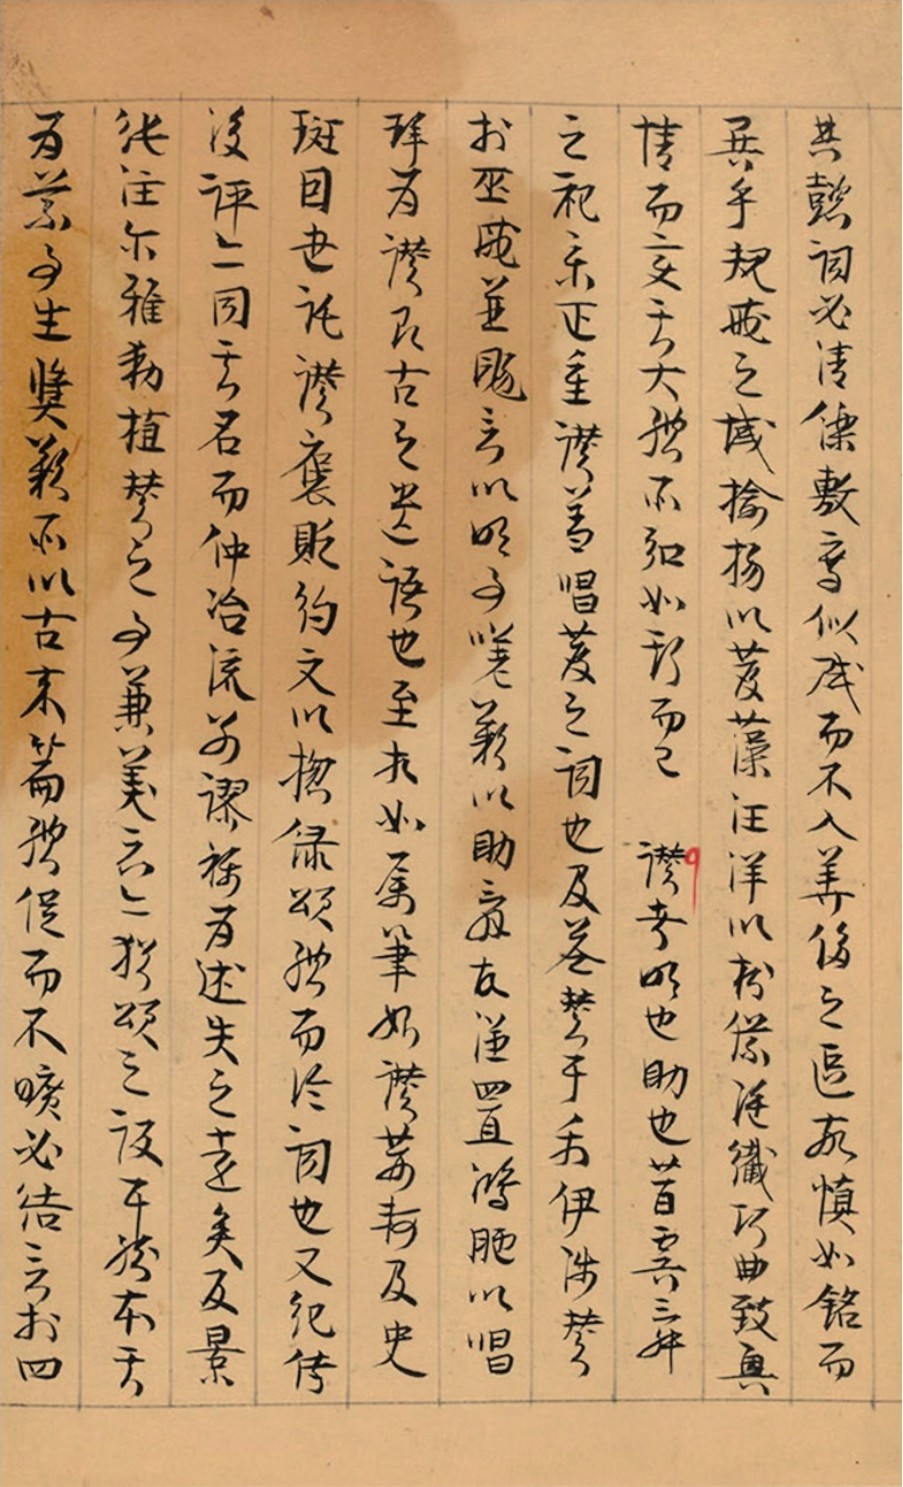 其懿詞必清傑敷寫似賦而不入華侈之區敬慎如銘而
異乎規戒之域揄揚以發藻汪洋以樹儀唯纖巧曲致與
情而變其大體所弘如斯而已 讚者明也助也昔虞舜
之祀樂正重讚蓋唱發之詞也及益贊于禹伊陟贊
於巫咸並颺言以明事嗟歎以助辭故漢置鴻臚以唱
拜為讚即古之遺語也至相如屬筆始讚荊軻及史
斑固書託讚褒貶約文以惣錄頌體而論詞也又紀傳
後評亦同其名而仲冶流別謬稱為述失之遠矣及景
純注尒雅動植贊之事兼美惡亦猶頌之設耳然本其
為義事生獎歎所以古來篇體促而不曠必結言於四